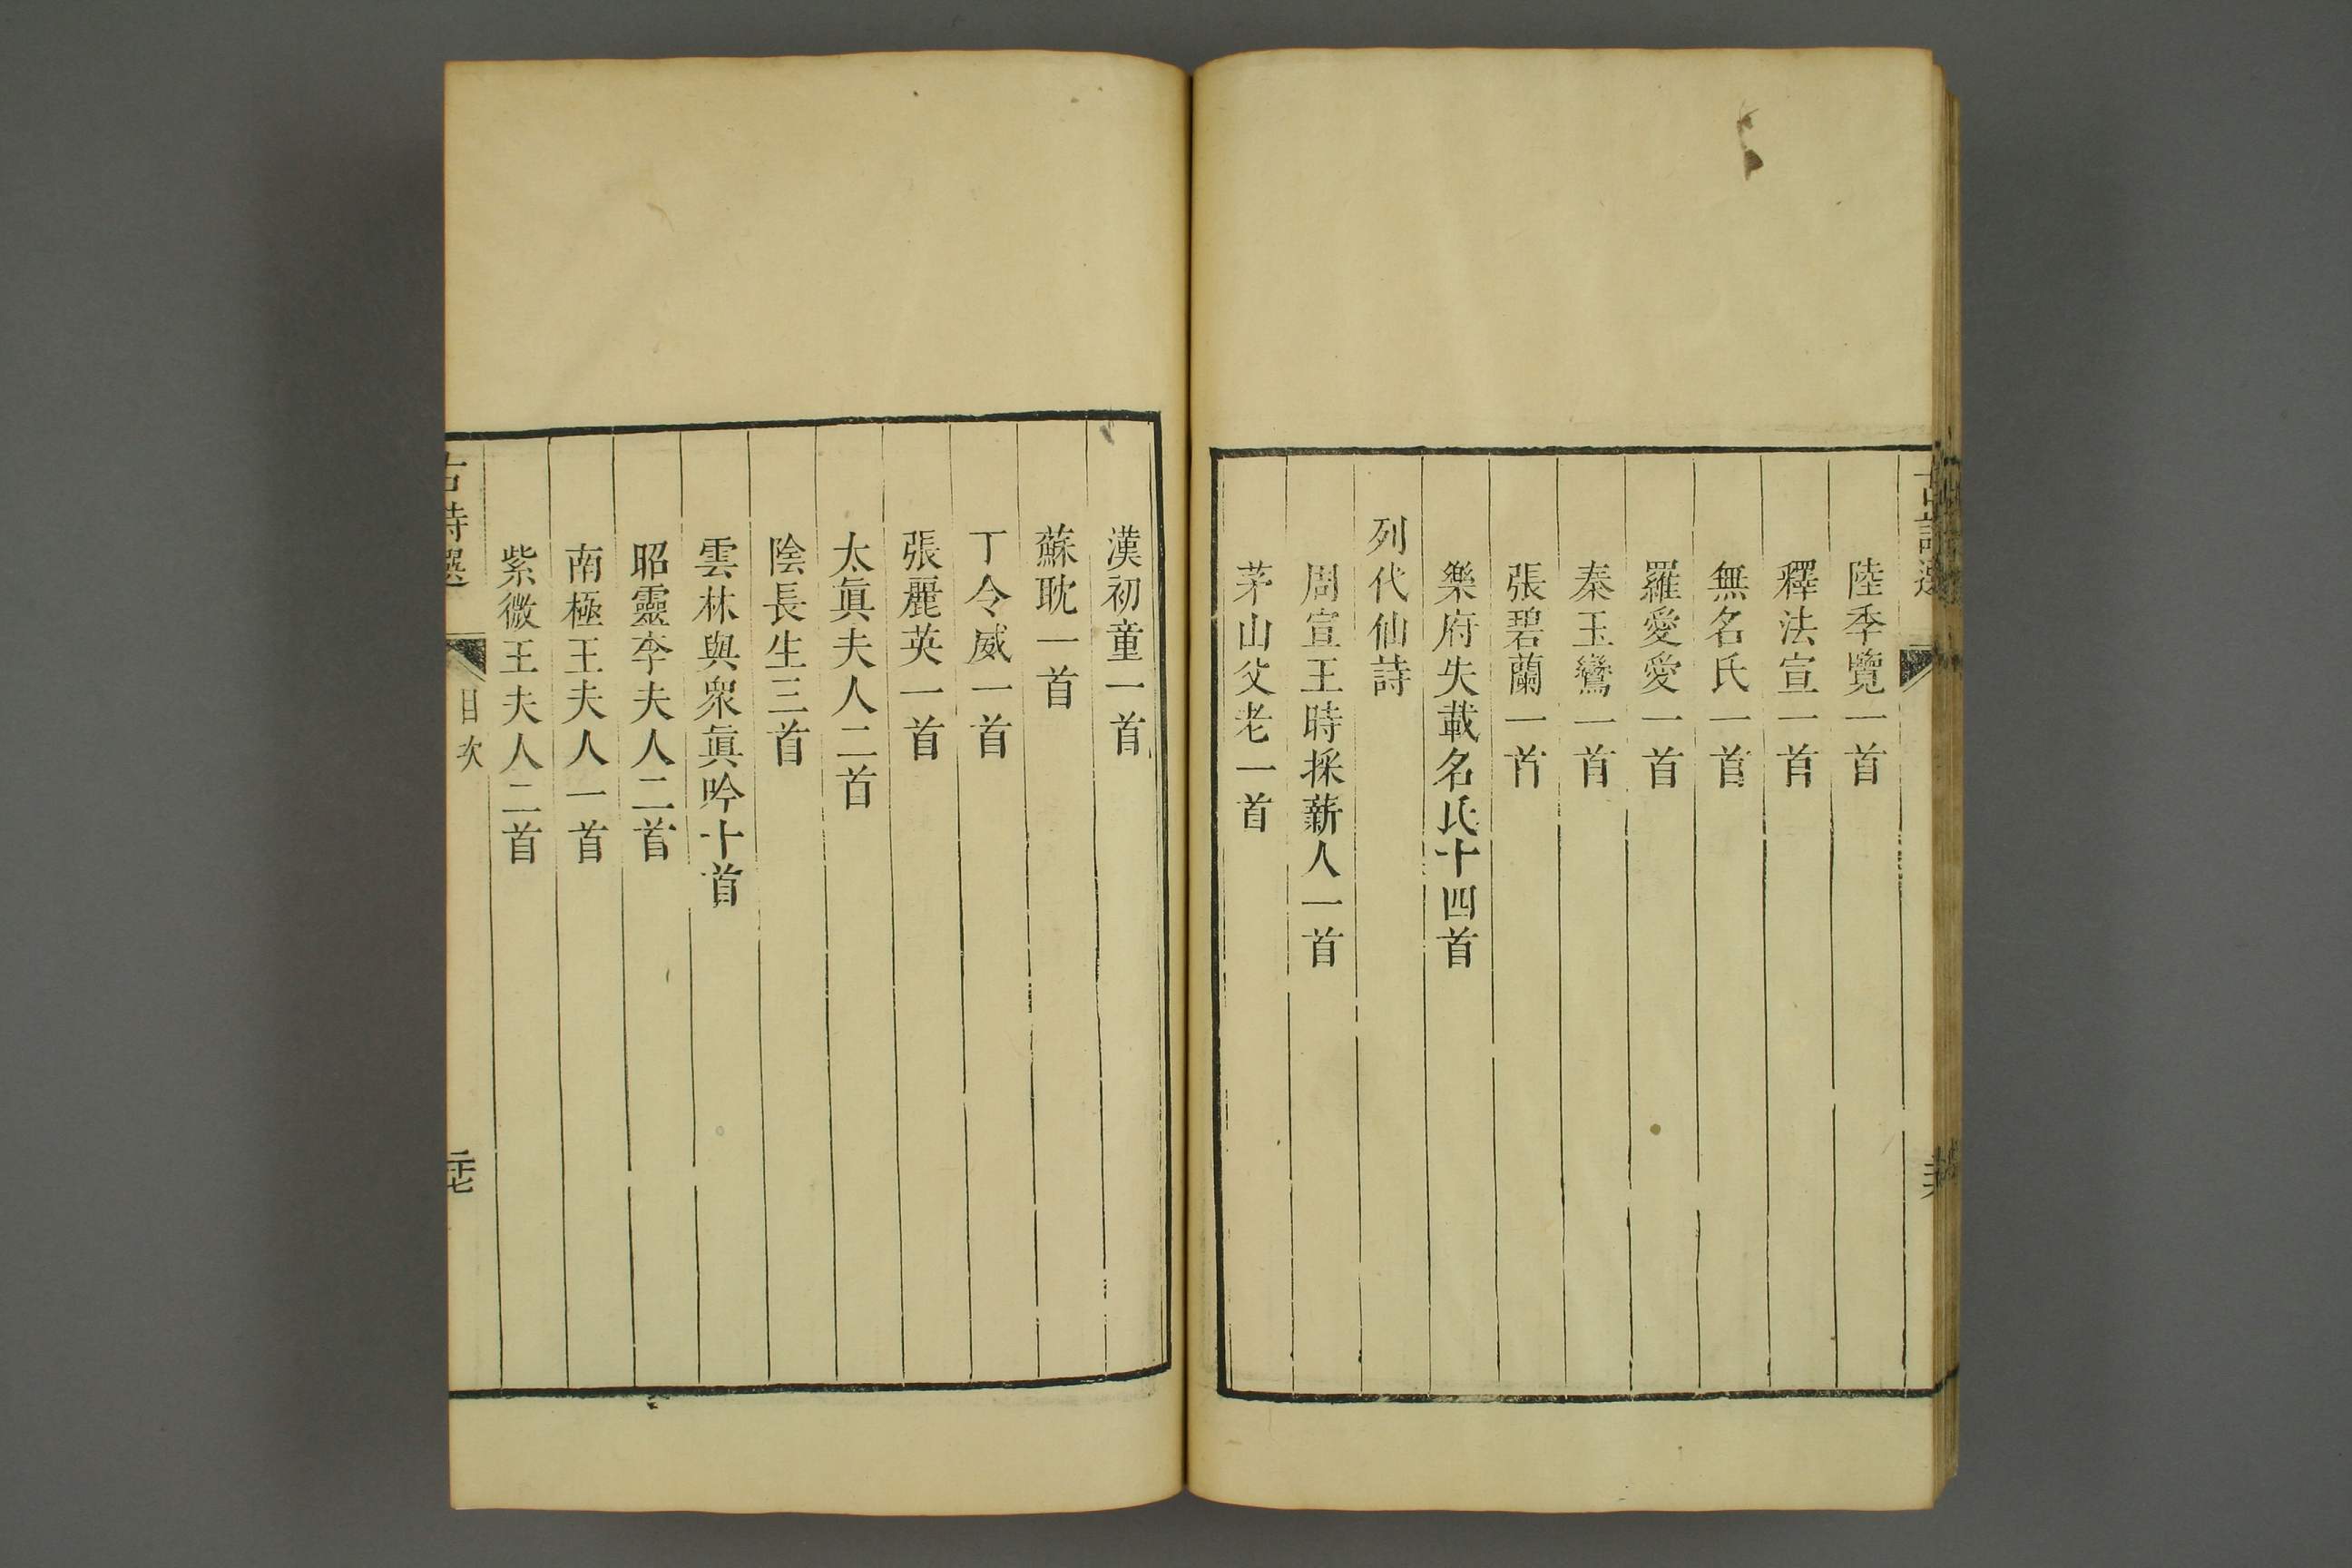 陸季覽一首
釋法宣一首
無名氏一首
羅愛愛一首
秦玉鸞一首
張碧蘭一首
樂府失載名氏十四首
列代仙詩
周宣王時採薪人一首
茅山父老一首
漢初童一首
蘇耽一首
丁令威一首
張麗英一首
太眞夫人二首
陰長生三首
雲林與衆眞吟十首
昭靈李夫人二首
南極王夫人一首
紫微王夫人二首
古詩選
目次
二十七